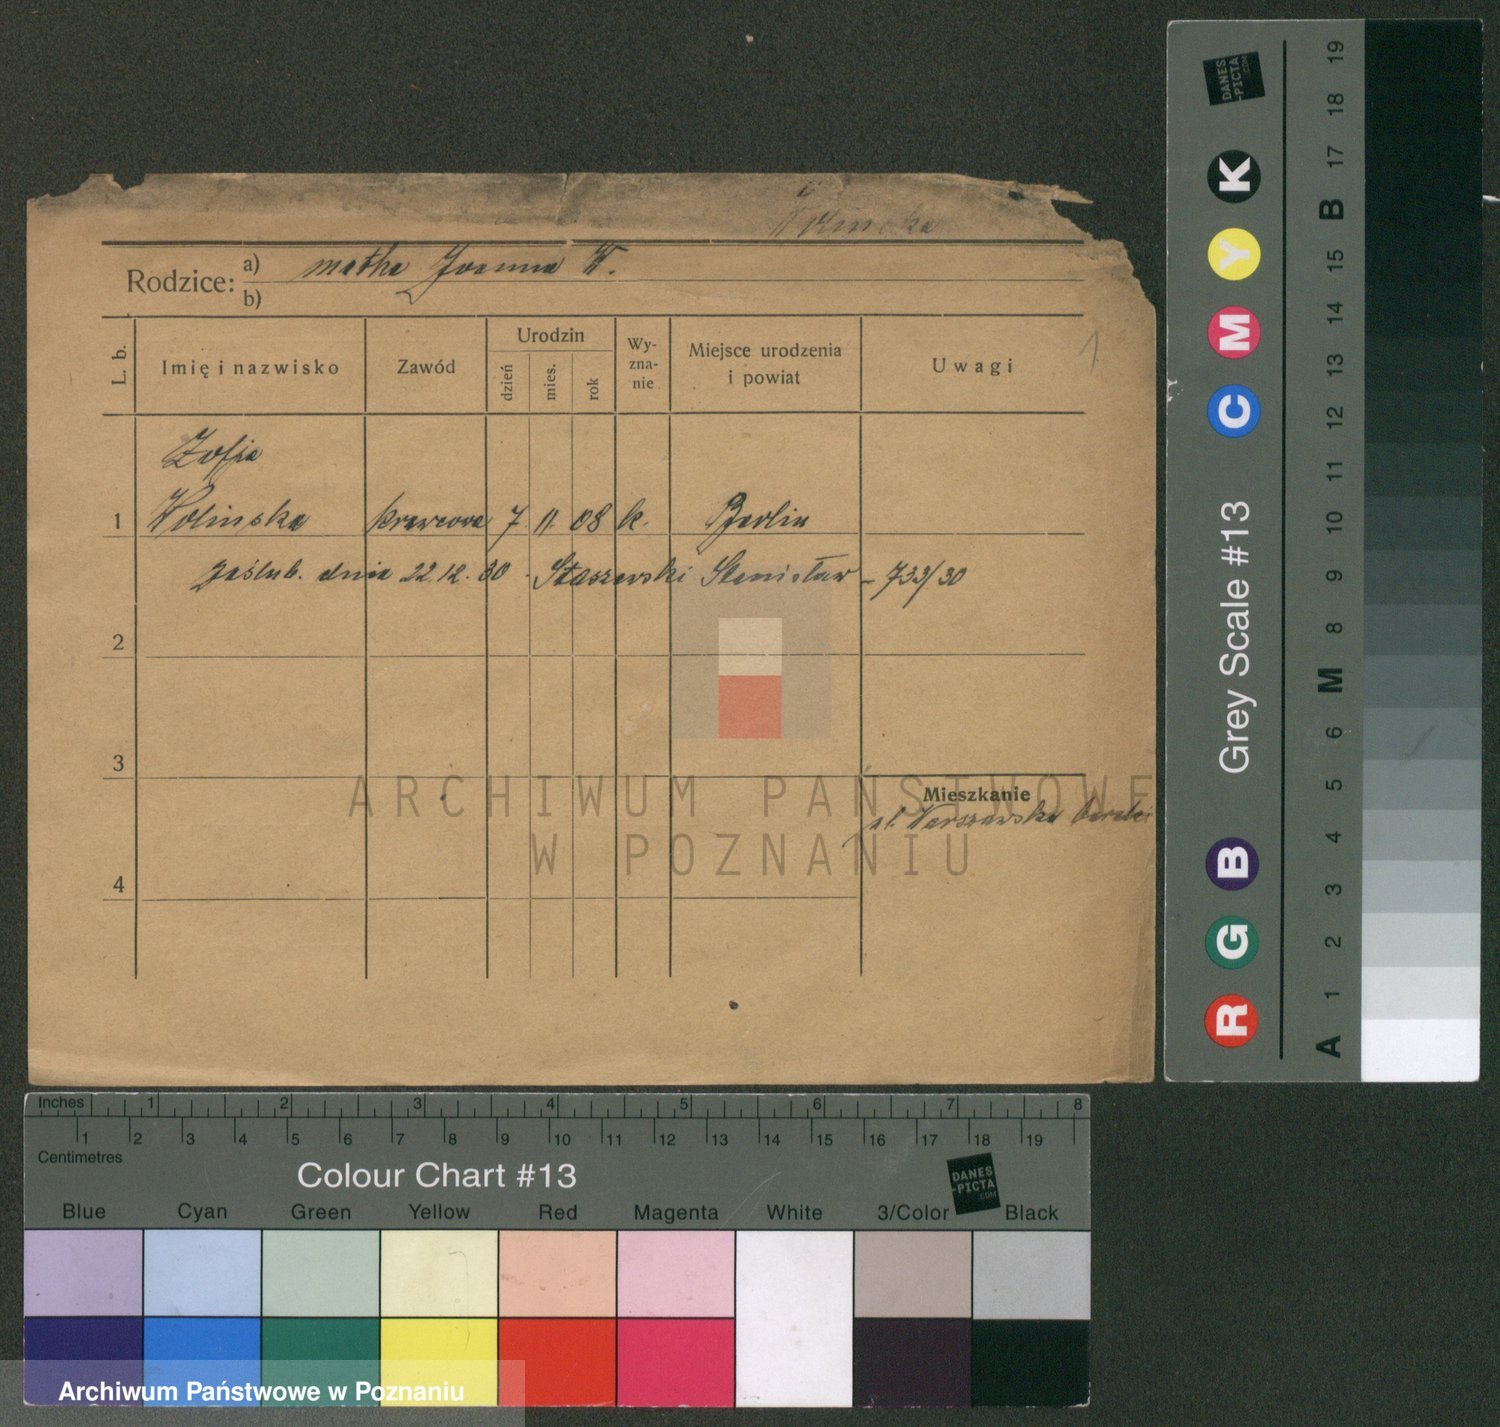 Wolinska
Rodzice: a) matka Joanna W.
b)
L. b.
Imię i nazwisko
Zawód
Urodzin
dzień
mies.
rok
Wy-
zna-
nie
Miejsce urodzenia
i powiat
Uwagi
1
Zofja
1 Wolinska krawcowa 7 11. 08 k. Berlin
zaślub. dnia 22.12.30 Staszewski Stanisław – 733/30
2
3
4
Mieszkanie
ul. Warszawska baraki
ARCHIWUM PAŃSTWOWE
W POZNANIU
Inches 1 2 3 4 5 6 7 8
1 2 3 4 5 6 7 8 9 10 11 12 13 14 15 16 17 18 19
Centimetres
Colour Chart #13
DANES
-PICTA
.COM
Blue Cyan Green Yellow Red Magenta White 3/Color Black
Archiwum Państwowe w Poznaniu
R G B Grey Scale #13 C M Y K
DANES
-PICTA
.COM
A 1 2 3 4 5 6 M 8 9 10 11 12 13 14 15 B 17 18 19